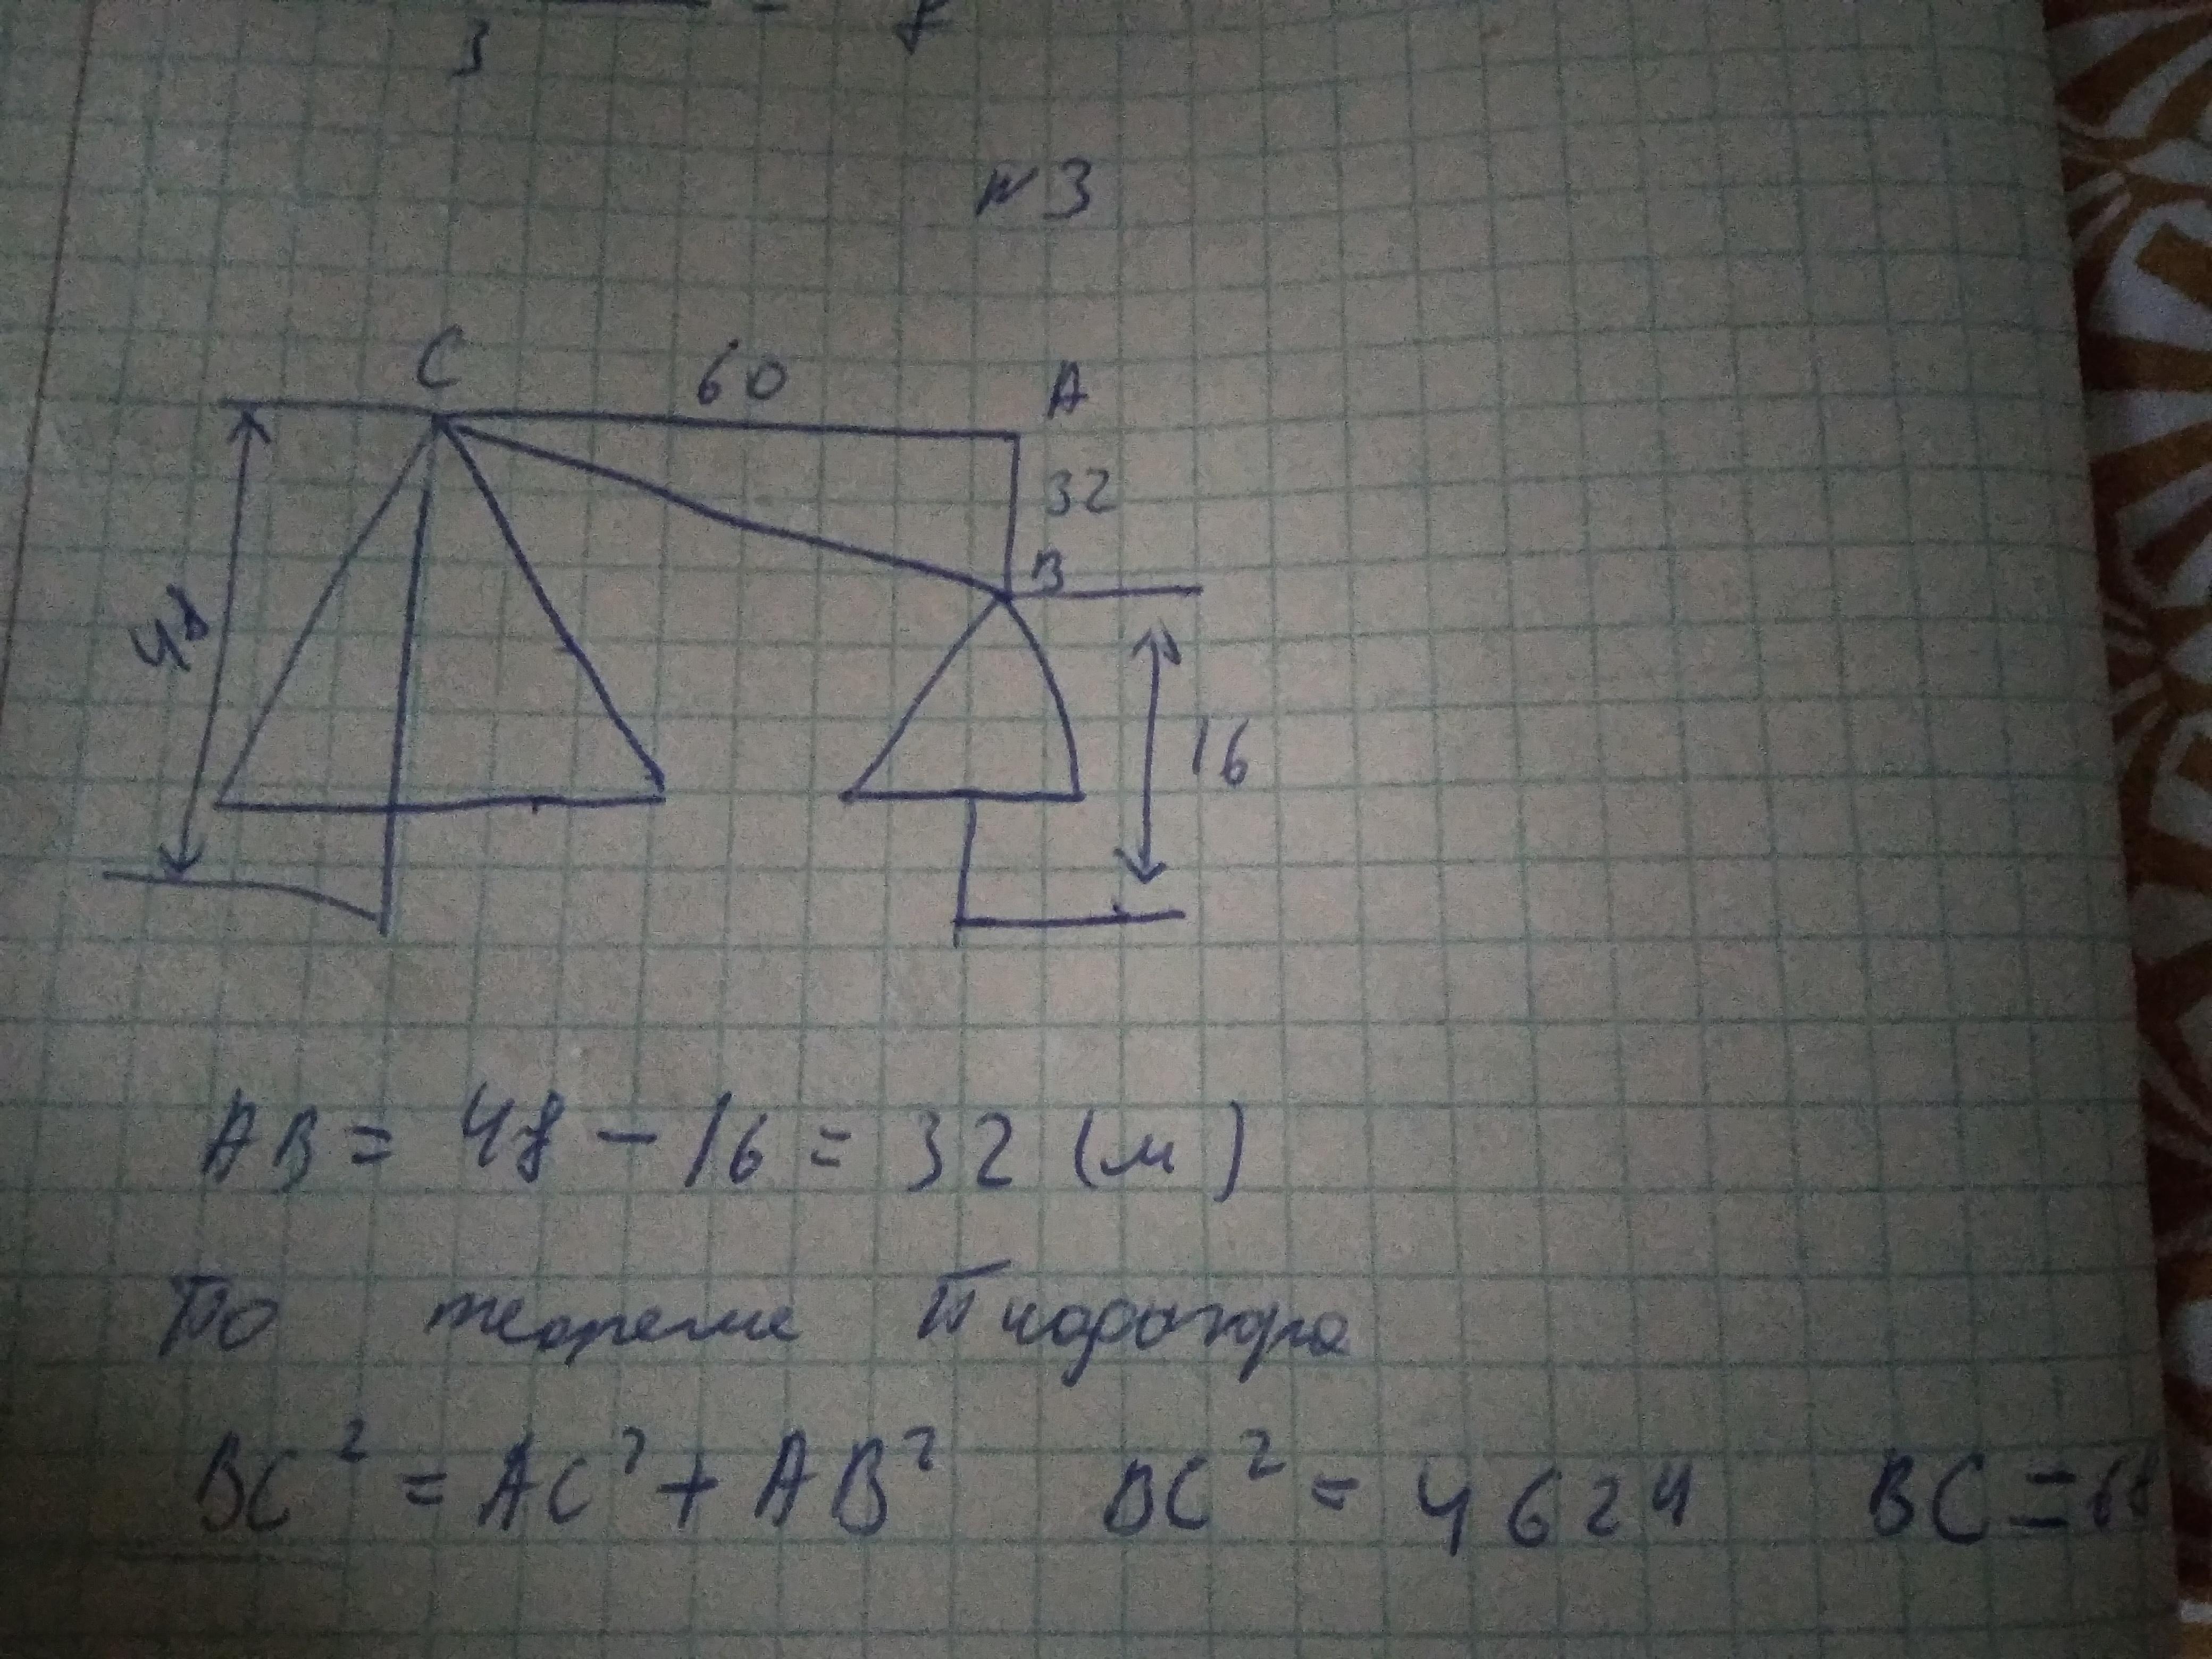 3 = 8
№3
C 60 A
32
B
48
16
AB = 48 - 16 = 32 (м)
По теореме Пифагора
BC² = AC² + AB² BC² = 4624 BC = 68